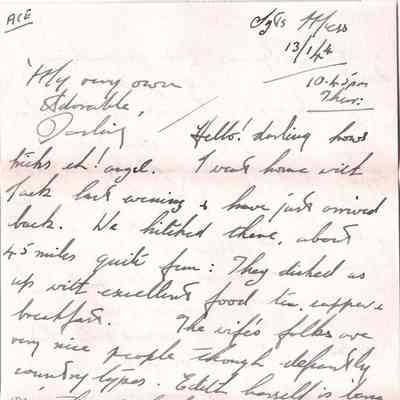 ACE
Sgts Mess
13/1/44
10.45pm
Thur:
'My very own
Adorable,
Darling
Hello! darling hows
tricks eh! angel. I went home with
Jack last evening & have just arrived
back. We hitched there, about
45 miles quite fun: They dished us
up with excellent food tea, supper &
breakfast. The wife's folks are
very nice people though definitely
country types. Edith herself is